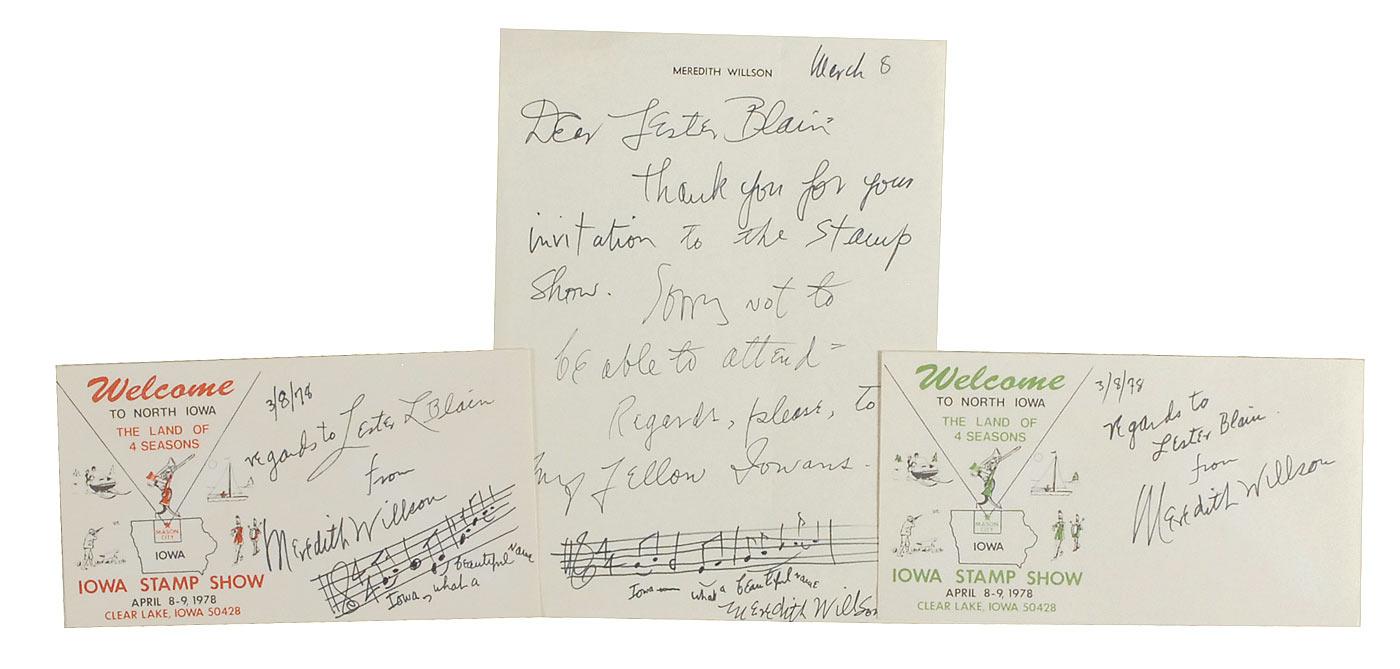 MEREDITH WILLSON
March 8
Dear Lester Blain=
Thank you for your
invitation to the stamp
show. Sorry not to
be able to attend=
Regards, please, to
my Fellow Iowans.
4/4
Iowa what a beautiful name
Meredith Willson
Welcome
TO NORTH IOWA
THE LAND OF
4 SEASONS
MASON
CITY
IOWA
IOWA STAMP SHOW
APRIL 8-9, 1978
CLEAR LAKE, IOWA 50428
3/8/78
regards to Lester L Blain
from
Meredith Willson
4/4
Iowa, what a beautiful name
Welcome
TO NORTH IOWA
THE LAND OF
4 SEASONS
MASON
CITY
IOWA
IOWA STAMP SHOW
APRIL 8-9, 1978
CLEAR LAKE, IOWA 50428
3/8/78
regards to
Lester Blain
from
Meredith Willson